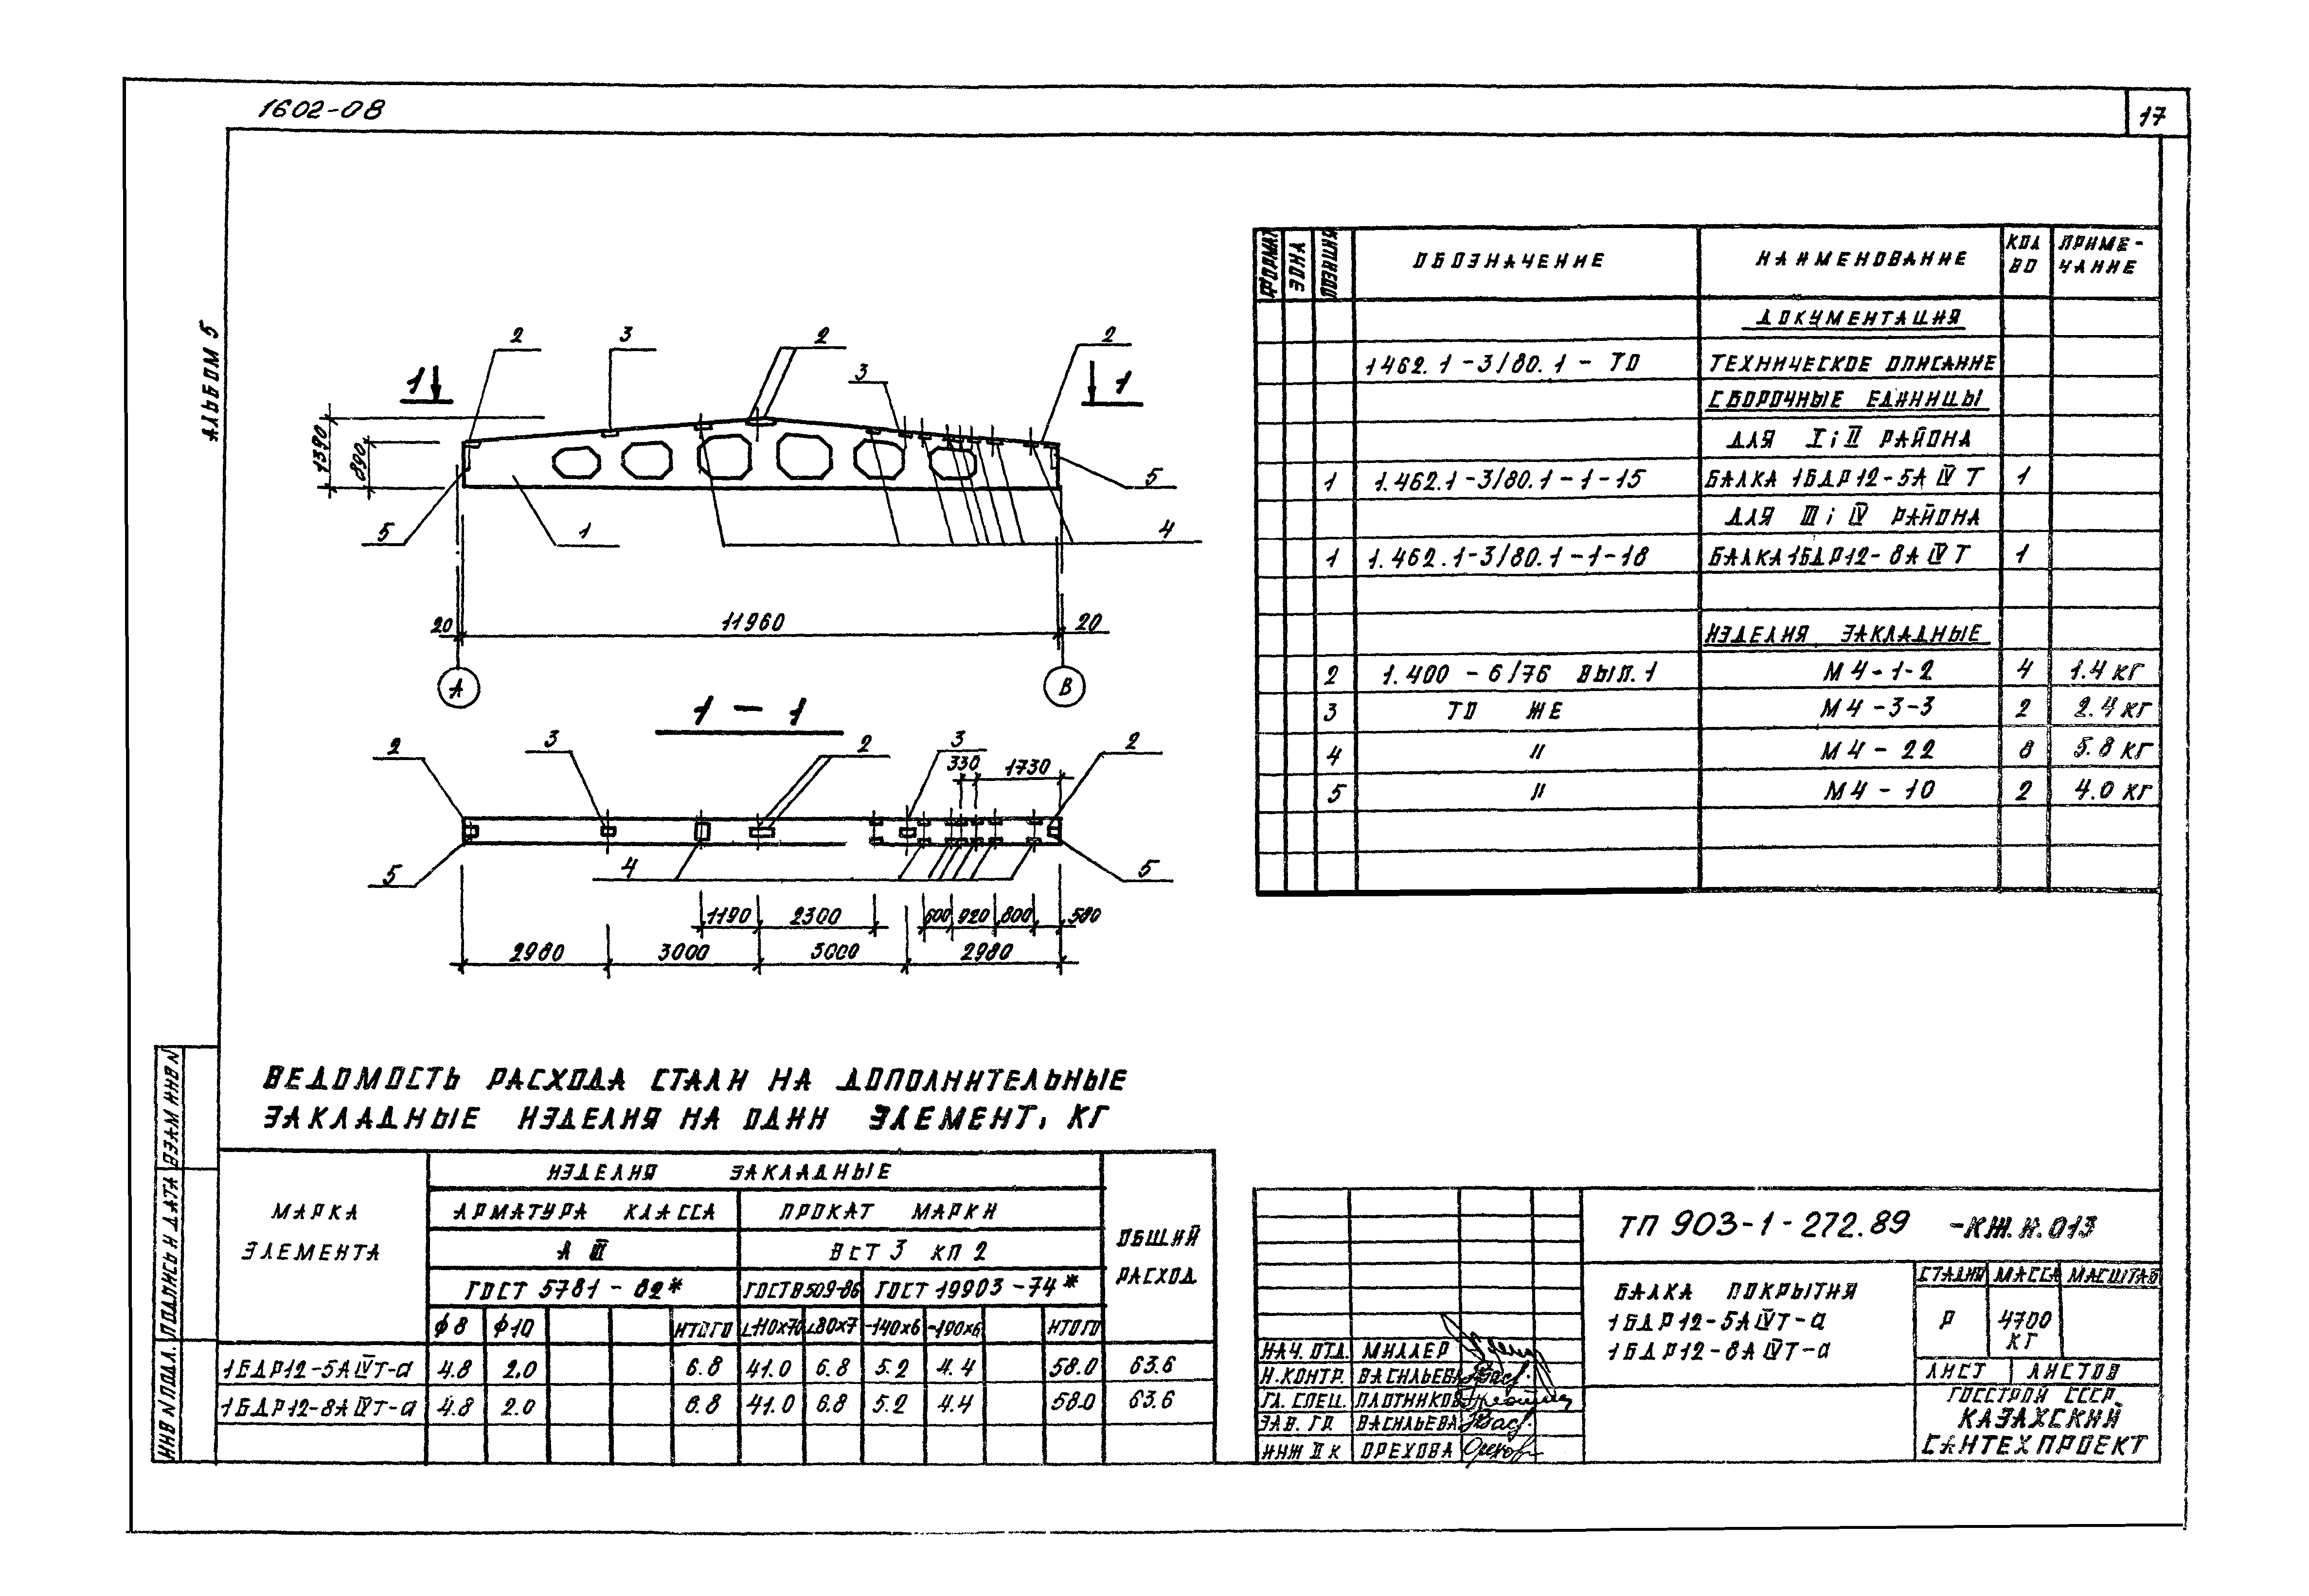 1602-08
17
АЛЬБОМ 5
2 3 2 3 2
1 1
1390
890
5 1 4 5
20 11960 20
А В
1 – 1
2 3 2 3 2
330 1730
5 4 5
1190 2300 600 920 800 580
2980 3000 3000 2980
ФОРМАТ ЗОНА ПОЗИЦИЯ ОБОЗНАЧЕНИЕ НАИМЕНОВАНИЕ КОЛ ВО ПРИМЕ-ЧАНИЕ
ДОКУМЕНТАЦИЯ
1462.1-3/80.1 - ТО ТЕХНИЧЕСКОЕ ОПИСАНИЕ
СБОРОЧНЫЕ ЕДИНИЦЫ
ДЛЯ I i II РАЙОНА
1 1.462.1-3/80.1-1-15 БАЛКА 1БДР12-5А IV Т 1
ДЛЯ III i IV РАЙОНА
1 1.462.1-3/80.1-1-18 БАЛКА 1БДР12-8А IV Т 1
ИЗДЕЛИЯ ЗАКЛАДНЫЕ
2 1.400 - 6/76 ВЫП.1 М4-1-2 4 1.4 КГ
3 ТО ЖЕ М4-3-3 2 2.4 КГ
4 " М4-22 8 5.8 КГ
5 " М4-10 2 4.0 КГ
ВЕДОМОСТЬ РАСХОДА СТАЛИ НА ДОПОЛНИТЕЛЬНЫЕ
ЗАКЛАДНЫЕ ИЗДЕЛИЯ НА ОДИН ЭЛЕМЕНТ, КГ
МАРКА ЭЛЕМЕНТА ИЗДЕЛИЯ ЗАКЛАДНЫЕ ОБЩИЙ РАСХОД
АРМАТУРА КЛАССА ПРОКАТ МАРКИ
А III ВСТ 3 КП 2
ГОСТ 5781 - 82* ГОСТ 8509-86 ГОСТ 19903-74*
ϕ8 ϕ10 ИТОГО ∟110х70 ∟80х7 -140х6 -190х6 ИТОГО
1БДР12-5АIVТ-а 4.8 2.0 6.8 41.0 6.8 5.2 4.4 58.0 63.6
1БДР12-8АIVТ-а 4.8 2.0 6.8 41.0 6.8 5.2 4.4 58.0 63.6
ВЗАМ ИНВ N
ПОДПИСЬ И ДАТА
ИНВ N ПОДЛ.
ТП 903-1-272.89 -КЖ.И.013
БАЛКА ПОКРЫТИЯ
1БДР12-5АIVТ-а
1БДР12-8АIVТ-а
СТАДИЯ МАССА МАСШТАБ
Р 4700 КГ
ЛИСТ ЛИСТОВ
ГОССТРОЙ СССР
КАЗАХСКИЙ
САНТЕХПРОЕКТ
НАЧ. ОТД. МИЛЛЕР
Н.КОНТР. ВАСИЛЬЕВА
ГЛ. СПЕЦ. ПЛОТНИКОВ
ЗАВ. ГР. ВАСИЛЬЕВА
ИНЖ II К ОРЕХОВА